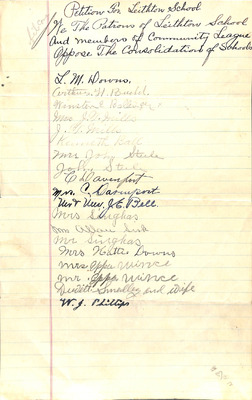 Petition For Leithton School
We The Patrons of Leithton School
And members of Community League
Oppose The Consolidation of Schools
L. M. Downs,
Arthur H.
Winston
Mrs J. G. Mills
J. G. Mills
Kenneth Ball
Mrs John Steele
John Steele
E Davenport
Mrs. C. Davenport.
Mr & Mrs. J. E. Bell.
Mrs Singhas
Mrs
Mr. Singhas
Mrs Hattie Downs
Mrs. Oppa Wince
Mr. Oppa Wince
Dewitt Smedley and wife
W. J. Phillips